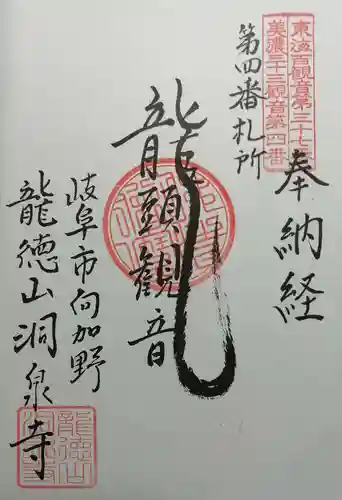 東海百観音第三十七番
美濃三十三観音第四番
奉納経
第四番札所
龍頭観音
岐阜市向加野
龍德山洞泉寺
龍德山
洞泉寺